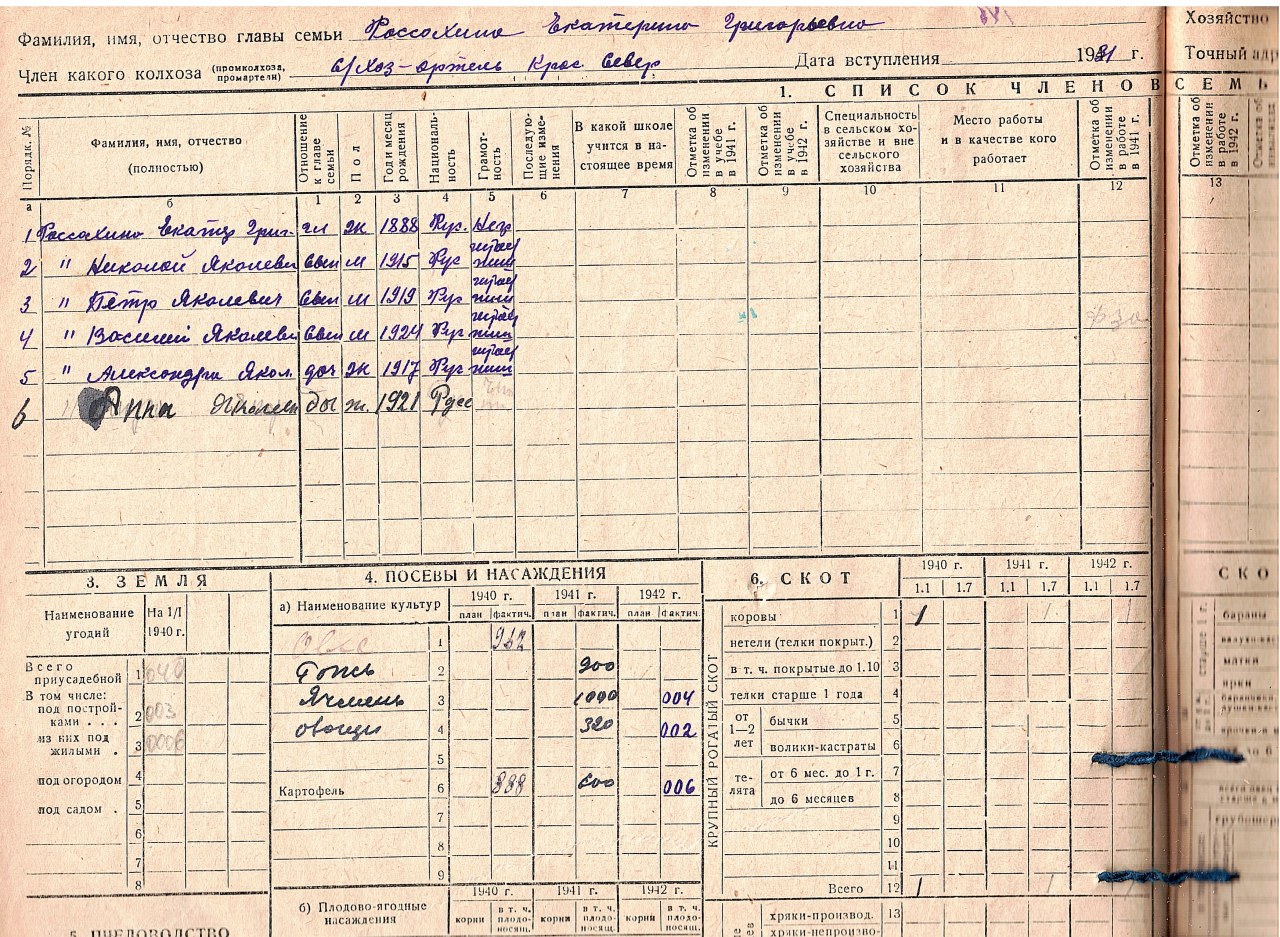 Фамилия, имя, отчество главы семьи Россохина Екатерина Григорьевна
Член какого колхоза (промколхоза, промартели) с/хоз-артель Крас Север Дата вступления 1931 г.
Хозяйство
Точный адр
1. СПИСОК ЧЛЕНОВ СЕМЬ
Порядк. № Фамилия, имя, отчество (полностью) Отношение к главе семьи Пол Год и месяц рождения Националь-ность Грамот-ность Последую-щие изме-нения В какой школе учится в на-стоящее время Отметка об изменении в учебе в 1941 г. Отметка об изменении в учебе в 1942 г. Специальность в сельском хо-зяйстве и вне сельского хозяйства Место работы и в качестве кого работает Отметка об изменении в работе в 1941 г. Отметка об изменении в работе в 1942 г.
а б 1 2 3 4 5 6 7 8 9 10 11 12 13
1 Россохина Екатер Григ. гл ж 1888 Рус. Негр
2 " Николай Яколеви сын м 1915 Рус
3 " Пётр Яколевич сын м 1919 Рус
4 " Василий Яколеви сын м 1924 Рус
5 " Александра Якол. доч ж 1917 Рус
6 Анна ж. 1921
3. ЗЕМЛЯ
Наименование угодий На 1/I 1940 г.
Всего приусадебной 1 040
В том числе:
под построй-ками . . . 2 003
из них под жилыми . 3 0006
под огородом 4
под садом . 5
6
7
8
4. ПОСЕВЫ И НАСАЖДЕНИЯ
а) Наименование культур 1940 г. 1941 г. 1942 г.
план фактич. план фактич. план фактич.
1
2 900
Ячмень 3 1000 004
овощи 4 320 002
5
Картофель 6 600 006
7
8
9
б) Плодово-ягодные насаждения 1940 г. 1941 г. 1942 г.
корни в т. ч. плодо-носящ. корни в т. ч. плодо-носящ. корни в т. ч. плодо-носящ.
6. СКОТ
1940 г. 1941 г. 1942 г.
1.1 1.7 1.1 1.7 1.1 1.7
КРУПНЫЙ РОГАТЫЙ СКОТ
коровы 1 1 1 1
нетели (телки покрыт.) 2
в т. ч. покрытые до 1.10 3
телки старше 1 года 4
от 1—2 лет бычки 5
волики-кастраты 6
те-лята от 6 мес. до 1 г. 7
до 6 месяцев 8
9
10
11
Всего 12 1 1
хряки-производ. 13
хряки-непроизво-
СКО
бараны
матки
ярки
5. ПЧЕЛОВОДСТВО